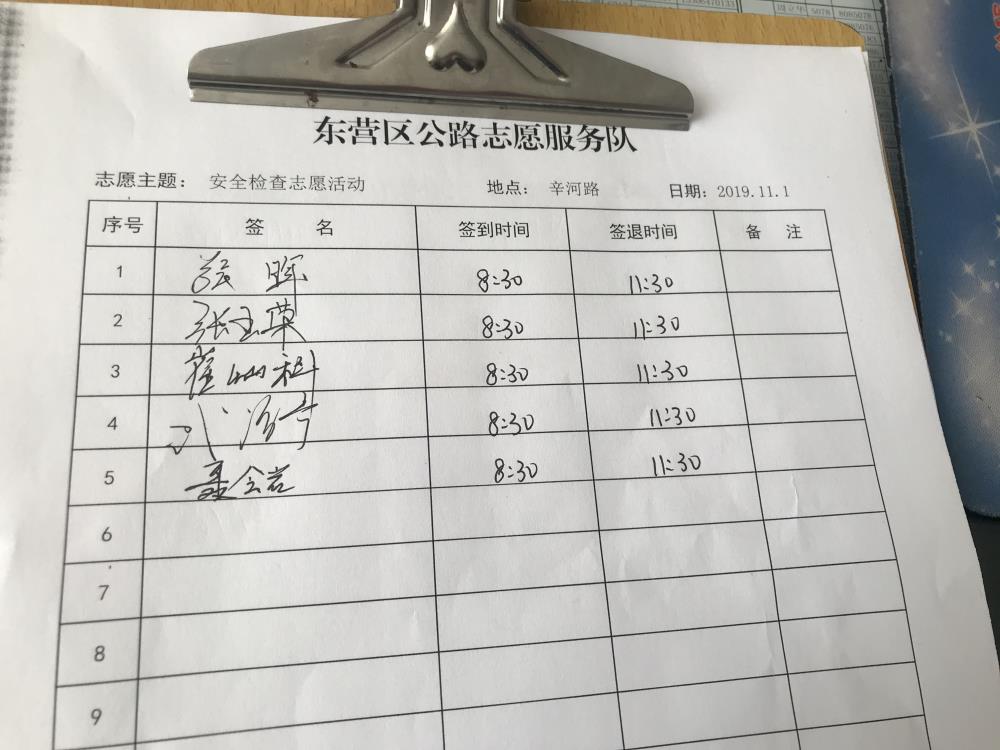 周立华 5078 8085078
东营区公路志愿服务队
志愿主题: 安全检查志愿活动 地点: 辛河路 日期: 2019.11.1
序号 签 名 签到时间 签退时间 备 注
1 张 晖 8:30 11:30
2 张玉荣 8:30 11:30
3 8:30 11:30
4 8:30 11:30
5 聂会岩 8:30 11:30
6
7
8
9